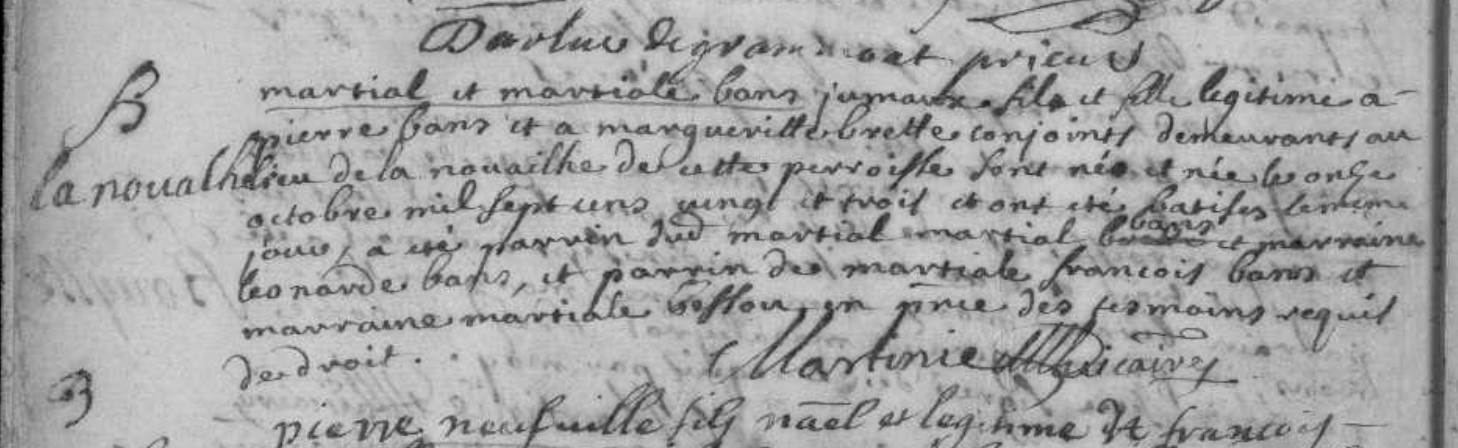 Darluc de grammont prieur
B
martial et martiale bans jumaux fils et fille legitime a
pierre bans et a margueritte brette conjoints demeurants au
la noualhe
lieu de la novailhe de cette perroisse sont nés et née le onze
octobre mil sept cens vingt et trois et ont eté batises le meme
jour, a eté parrin dud martial martial bans et marraine
leonarde bans, et parrin de martiale francois bans et
marraine martiale en pnce des tesmoins requis
de droit.
Martinie Vicaire
B
pierre neufville fils nael et legitime de francois